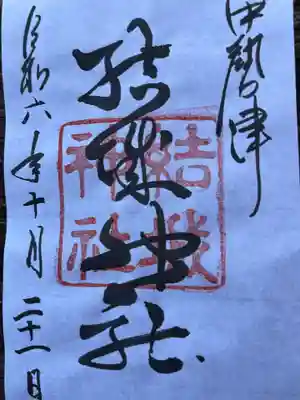 伊勢津
結城神社
令和六年十月二十一日
結城
神社